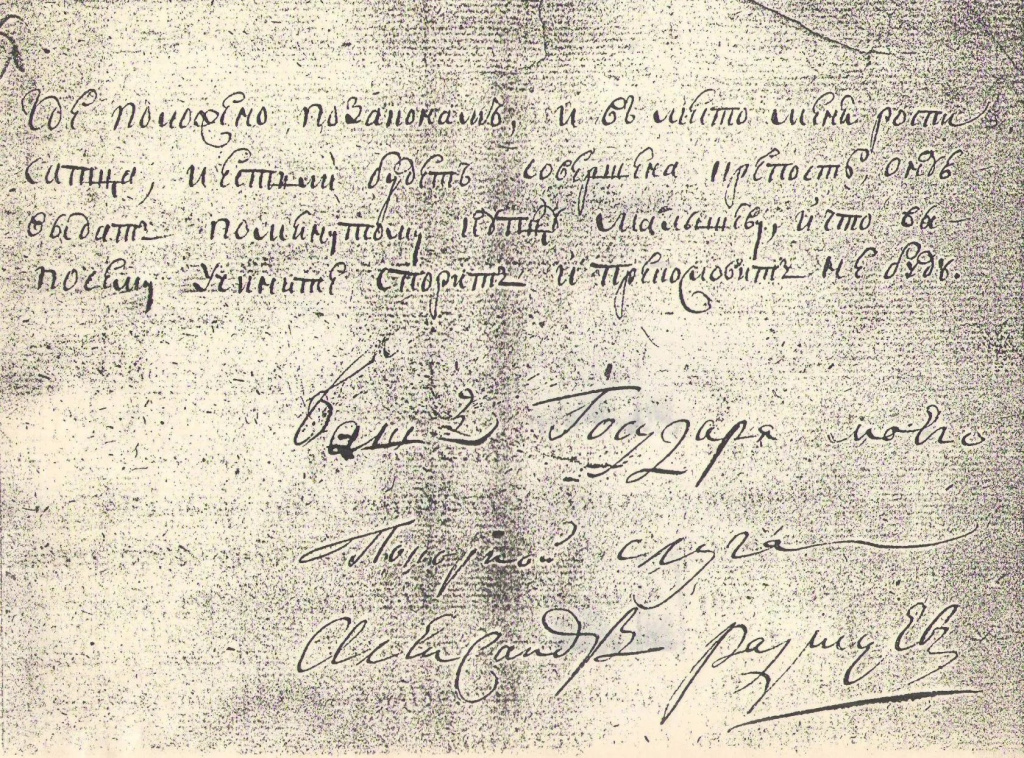 где положено позаконамъ, и въ место меня роспи
сатца, и естьли будетъ совершена крепость, онъ
выдать помянутому купцу малышеву, и что вы
посему учините спорить и прекословить не буду.
Вашъ Государя моего
Покорной слуга
Александръ